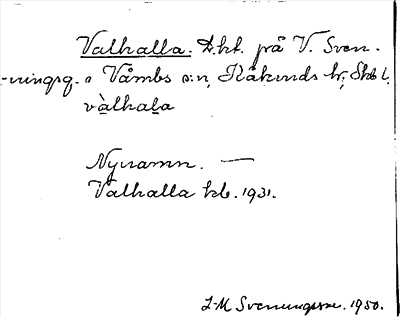 Valhalla. D.ht. på V. Sven-
ningsg. i Våmbs s:n, Kåkinds hr, Skb l.
vàlhaḷa
Nynamn. —
Valhalla kb. 1931.
I-M Svenungsson. 1950.